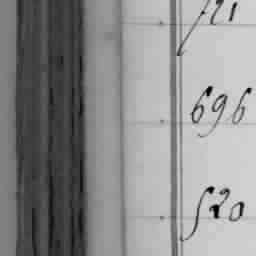 521
696
520